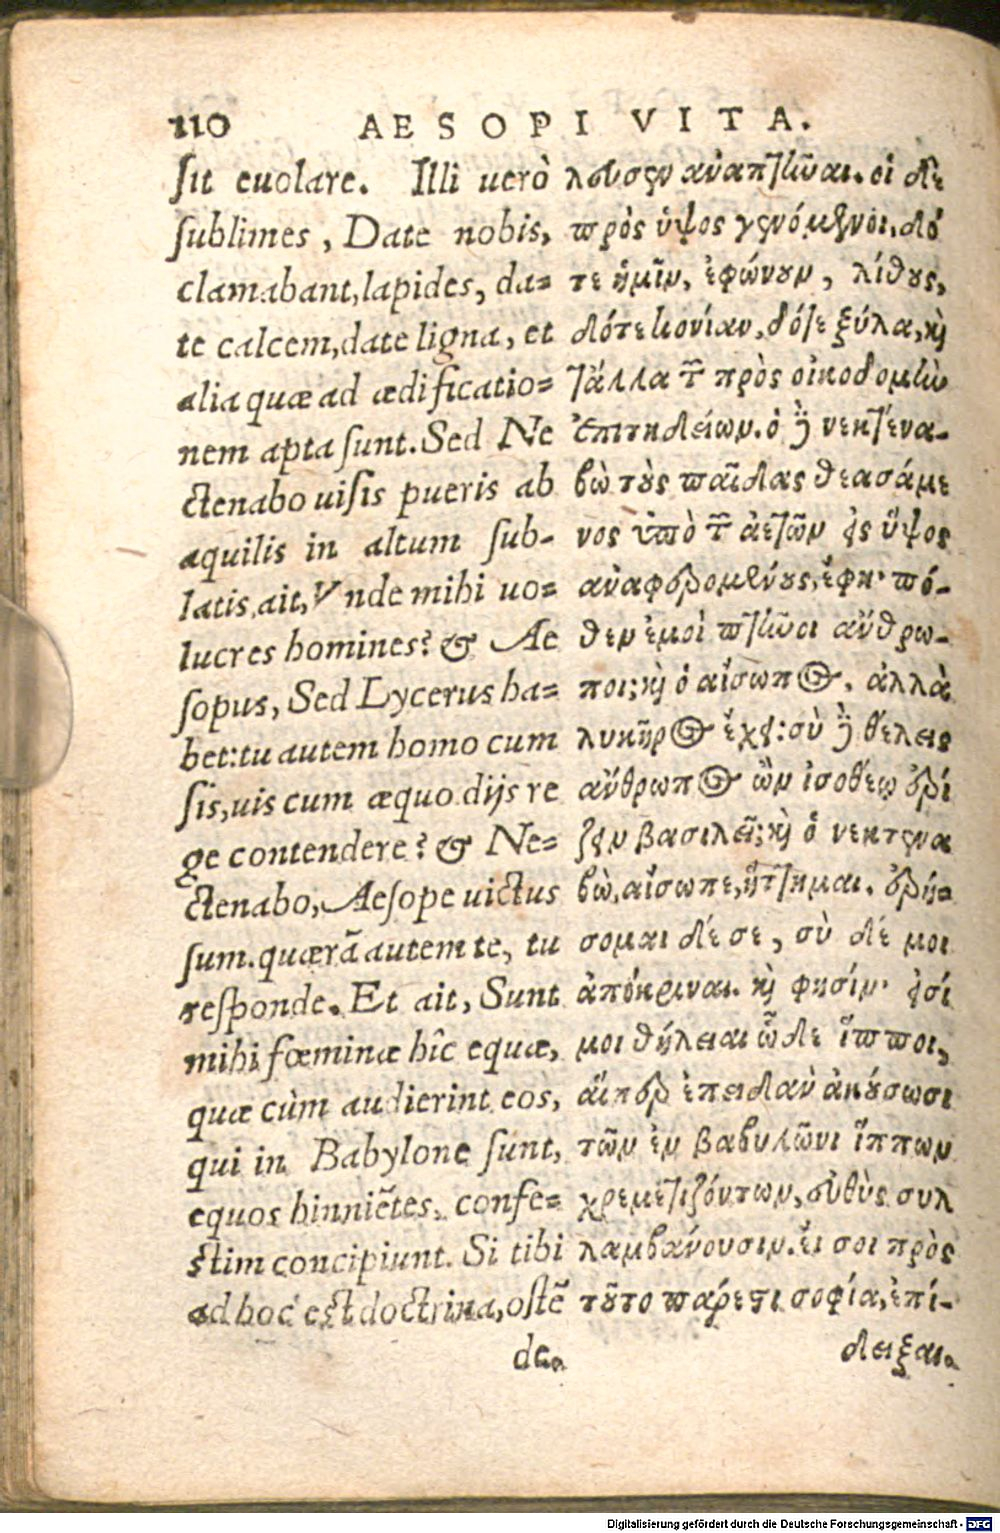 110 AESOPI VITA.
sit euolare. Illi uerò
sublimes, Date nobis,
clamabant, lapides, da=
te calcem, date ligna, et
alia quæ ad ædificatio=
nem apta sunt. Sed Ne
ctenabo uisis pueris ab
aquilis in altum sub-
latis, ait, Vnde mihi uo=
lucres homines? & Ae
sopus, Sed Lycerus ha=
bet: tu autem homo cum
sis, uis cum æquo dijs re
ge contendere? & Ne=
ctenabo, Aesope uictus
sum. quærã autem te, tu
responde. Et ait, Sunt
mihi fœminæ hîc equæ,
quæ cùm audierint eos,
qui in Babylone sunt,
equos hinniẽtes, confe=
stim concipiunt. Si tibi
ad hoc est doctrina, ostẽ
de.
λουσιν ἀναπτῆναι. οἱ δὲ
πρὸς ὕψος γενόμενοι, δό
τε ἡμῖν, ἐφώνουν, λίθους,
δότε κονίαν, δότε ξύλα, καὶ
τἄλλα τῶν πρὸς οἰκοδομὴν
ἐπιτηδείων. ὁ δὲ νεκτενα-
βὼ τοὺς παῖδας θεασάμε
νος ὑπὸ τῶν ἀετῶν εἰς ὕψος
ἀναφερομένους, ἔφη· πό-
θεν ἐμοὶ πτηνοὶ ἄνθρω-
ποι; καὶ ὁ αἴσωπος, ἀλλὰ
λυκῆρος ἔχει: σὺ δὲ θέλεις
ἄνθρωπος ὢν ἰσοθέῳ ἐρί
ζειν βασιλεῖ; καὶ ὁ νεκτενα
βὼ, αἴσωπε, ἥττημαι. ἐρή=
σομαι δέ σε, σὺ δέ μοι
ἀπόκριναι. καὶ φησίν· εἰσί
μοι θήλειαι ὧδε ἵπποι,
αἵπερ ἐπειδὰν ἀκούσωσι
τῶν ἐν βαβυλῶνι ἵππων
χρεμετιζόντων, εὐθὺς συλ
λαμβάνουσιν. εἰ σοι πρὸς
τοῦτο πάρεστι σοφία, ἐπί-
δειξαι.
Digitalisierung gefördert durch die Deutsche Forschungsgemeinschaft - DFG